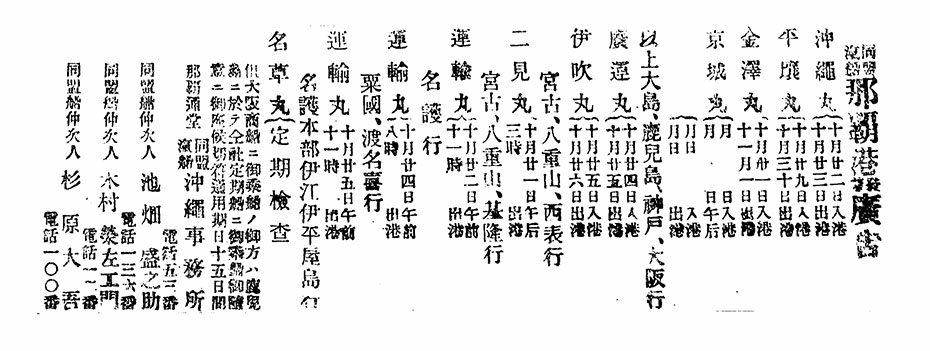 同盟汽船 那覇港 廣告
沖繩丸 十月廿二日入港
十月廿三日出港
平壤丸 十月廿九日入港
十月三十日出港
金澤丸 十月卅一日入港
十一月一日出港
京城丸 月 日午后
月 日出港
以上大島、鹿兒島、神戸、大阪行
廣運丸 十月廿四日入港
十月廿五日出港
伊吹丸 十月廿五日入港
十月廿六日出港
宮古、八重山、西表行
二見丸 十月廿一日午后
三時 出港
宮古、八重山、基隆行
運輸丸 十月廿二日午后
十一時 出港
名護行
運輸丸 十月廿四日午前
八時 出港
粟國、渡名喜行
運輸丸 十月廿五日午前
十一時 出港
名護本部伊江伊平屋島行
名草丸 定期檢査
但大阪商船ニ御乘船ノ御方ハ鹿兒
島ニ於テ全社定期船ニ御乘船御隨
意ニ御座候切符通用期日十五日間
那覇通堂 同盟汽船 沖繩事務所
電話五三番
同盟艀仲次人 池畑盛之助
電話一三六番
同盟艀仲次人 木村榮左エ門
電話一二番
同盟艀仲次人 杉原大吾
電話一〇〇番